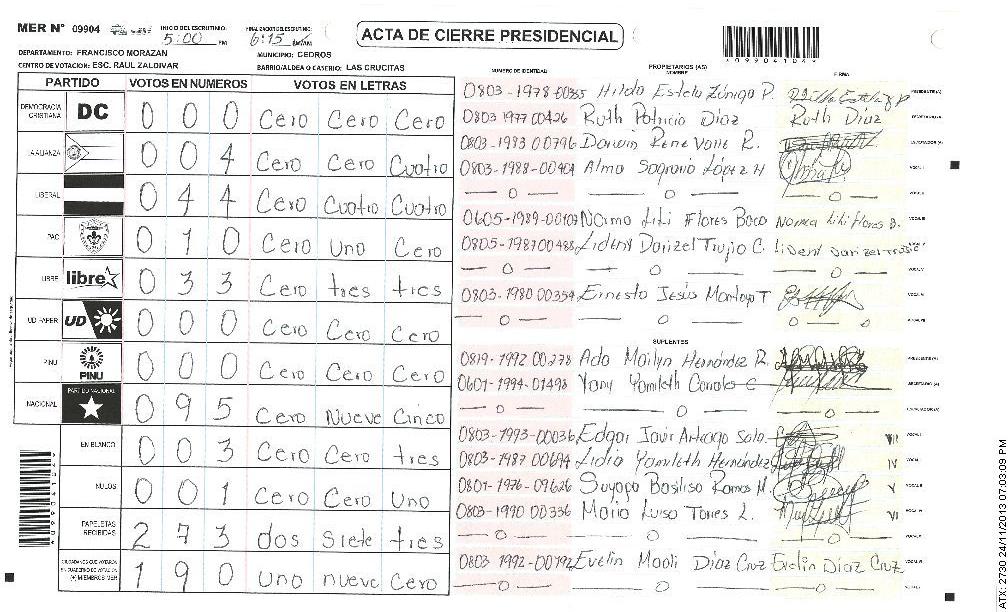 MER Nº 09904
INICIO DEL ESCRUTINIO: 5:00 PM
FINALIZACION DEL ESCRUTINIO: 6:15
ACTA DE CIERRE PRESIDENCIAL
DEPARTAMENTO: FRANCISCO MORAZAN
MUNICIPIO: CEDROS
CENTRO DE VOTACION: ESC. RAUL ZALDIVAR
BARRIO/ALDEA O CASERIO: LAS CRUCITAS
PARTIDO VOTOS EN NUMEROS VOTOS EN LETRAS
DEMOCRACIA CRISTIANA DC 0 0 0 Cero Cero Cero
LA ALIANZA 0 0 4 Cero Cero Cuatro
LIBERAL 0 4 4 Cero Cuatro Cuatro
PAC 0 1 0 Cero Uno Cero
LIBRE libre 0 3 3 Cero tres tres
UD FAPER UD 0 0 0 Cero Cero Cero
PINU PINU 0 0 0 Cero Cero Cero
NACIONAL PARTIDO NACIONAL 0 9 5 Cero Nueve Cinco
EN BLANCO 0 0 3 Cero Cero tres
NULOS 0 0 1 Cero Cero Uno
PAPELETAS RECIBIDAS 2 7 3 dos Siete tres
CIUDADANOS QUE VOTARON EN CUADERNO DE VOTACION (+) MIEMBROS MER 1 9 0 uno nueve Cero
NUMERO DE IDENTIDAD PROPIETARIOS (AS) NOMBRE FIRMA
0803-1978 Hilda Estela Zúniga P. PRESIDENTE (A)
0803 1977 00426 Ruth Patricia Díaz Ruth Díaz SECRETARIO (A)
0803-1983 00796 Darwin Rene R. ESCRUTADOR (A)
0803-1988-00904 Alma Sagrario López H VOCAL I
— 0 — — 0 — — 0 — VOCAL II
0605-1989-00109 Norma Lili Flores Baca Norma Lili Flores B. VOCAL III
0805-1987 00488 Darizel C.
— 0 — — 0 — — 0 — VOCAL V
0803-1980 00354 Ernesto Jesús Montoya T VOCAL VI
— 0 — — 0 — 0 — 0
SUPLENTES
0819-1992 00278 Ada Mailyn Hernández R. PRESIDENTE (A)
0601-1994-01498 Yamileth Canales C SECRETARIO (A)
— 0 — — 0 — — 0 — ESCRUTADOR (A)
0803-1993-00036 Edgar Javir VOCAL I VII
0803-1987 00694 Lidia Yamileth Hernández IV
0801-1976-09626 Suyapa Basilisa Ramos M. V
0803-1990 00336 Maria Luisa Torres L. VI
0803 1992-00792 Evelin Díaz Cruz Evelin Díaz Cruz
— 0 — — 0 — — 0 —
ATX: 2730 24/11/2013 07:03:09 PM